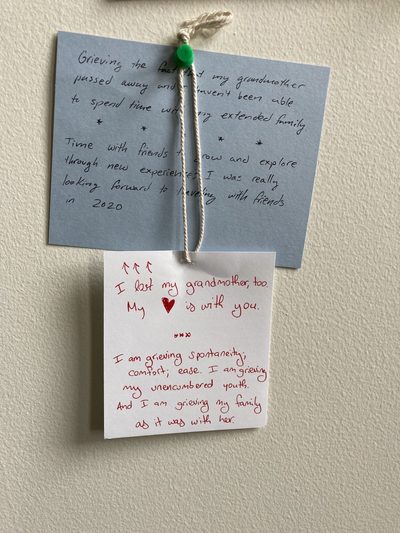 Grieving the fact that my grandmother
passed away and haven't been able
to spend time with my extended family
* * * *
Time with friends to grow and explore
through new experiences, I was really
looking forward to traveling with friends
in 2020
↑↑↑
I lost my grandmother, too.
My ♥ is with you.
***
I am grieving spontaneity,
comfort, ease. I am grieving
my unencumbered youth.
And I am grieving my family
as it was with her.